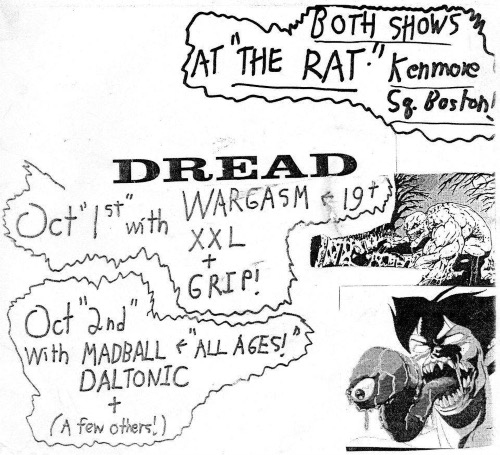 BOTH SHOWS
AT "THE RAT." Kenmore
Sq. Boston!
DREAD
Oct "1st" with WARGASM ← 19+
XXL
+
GRIP!
Oct "2nd"
with MADBALL ← "ALL AGES!"
DALTONIC
+
(A few others!)